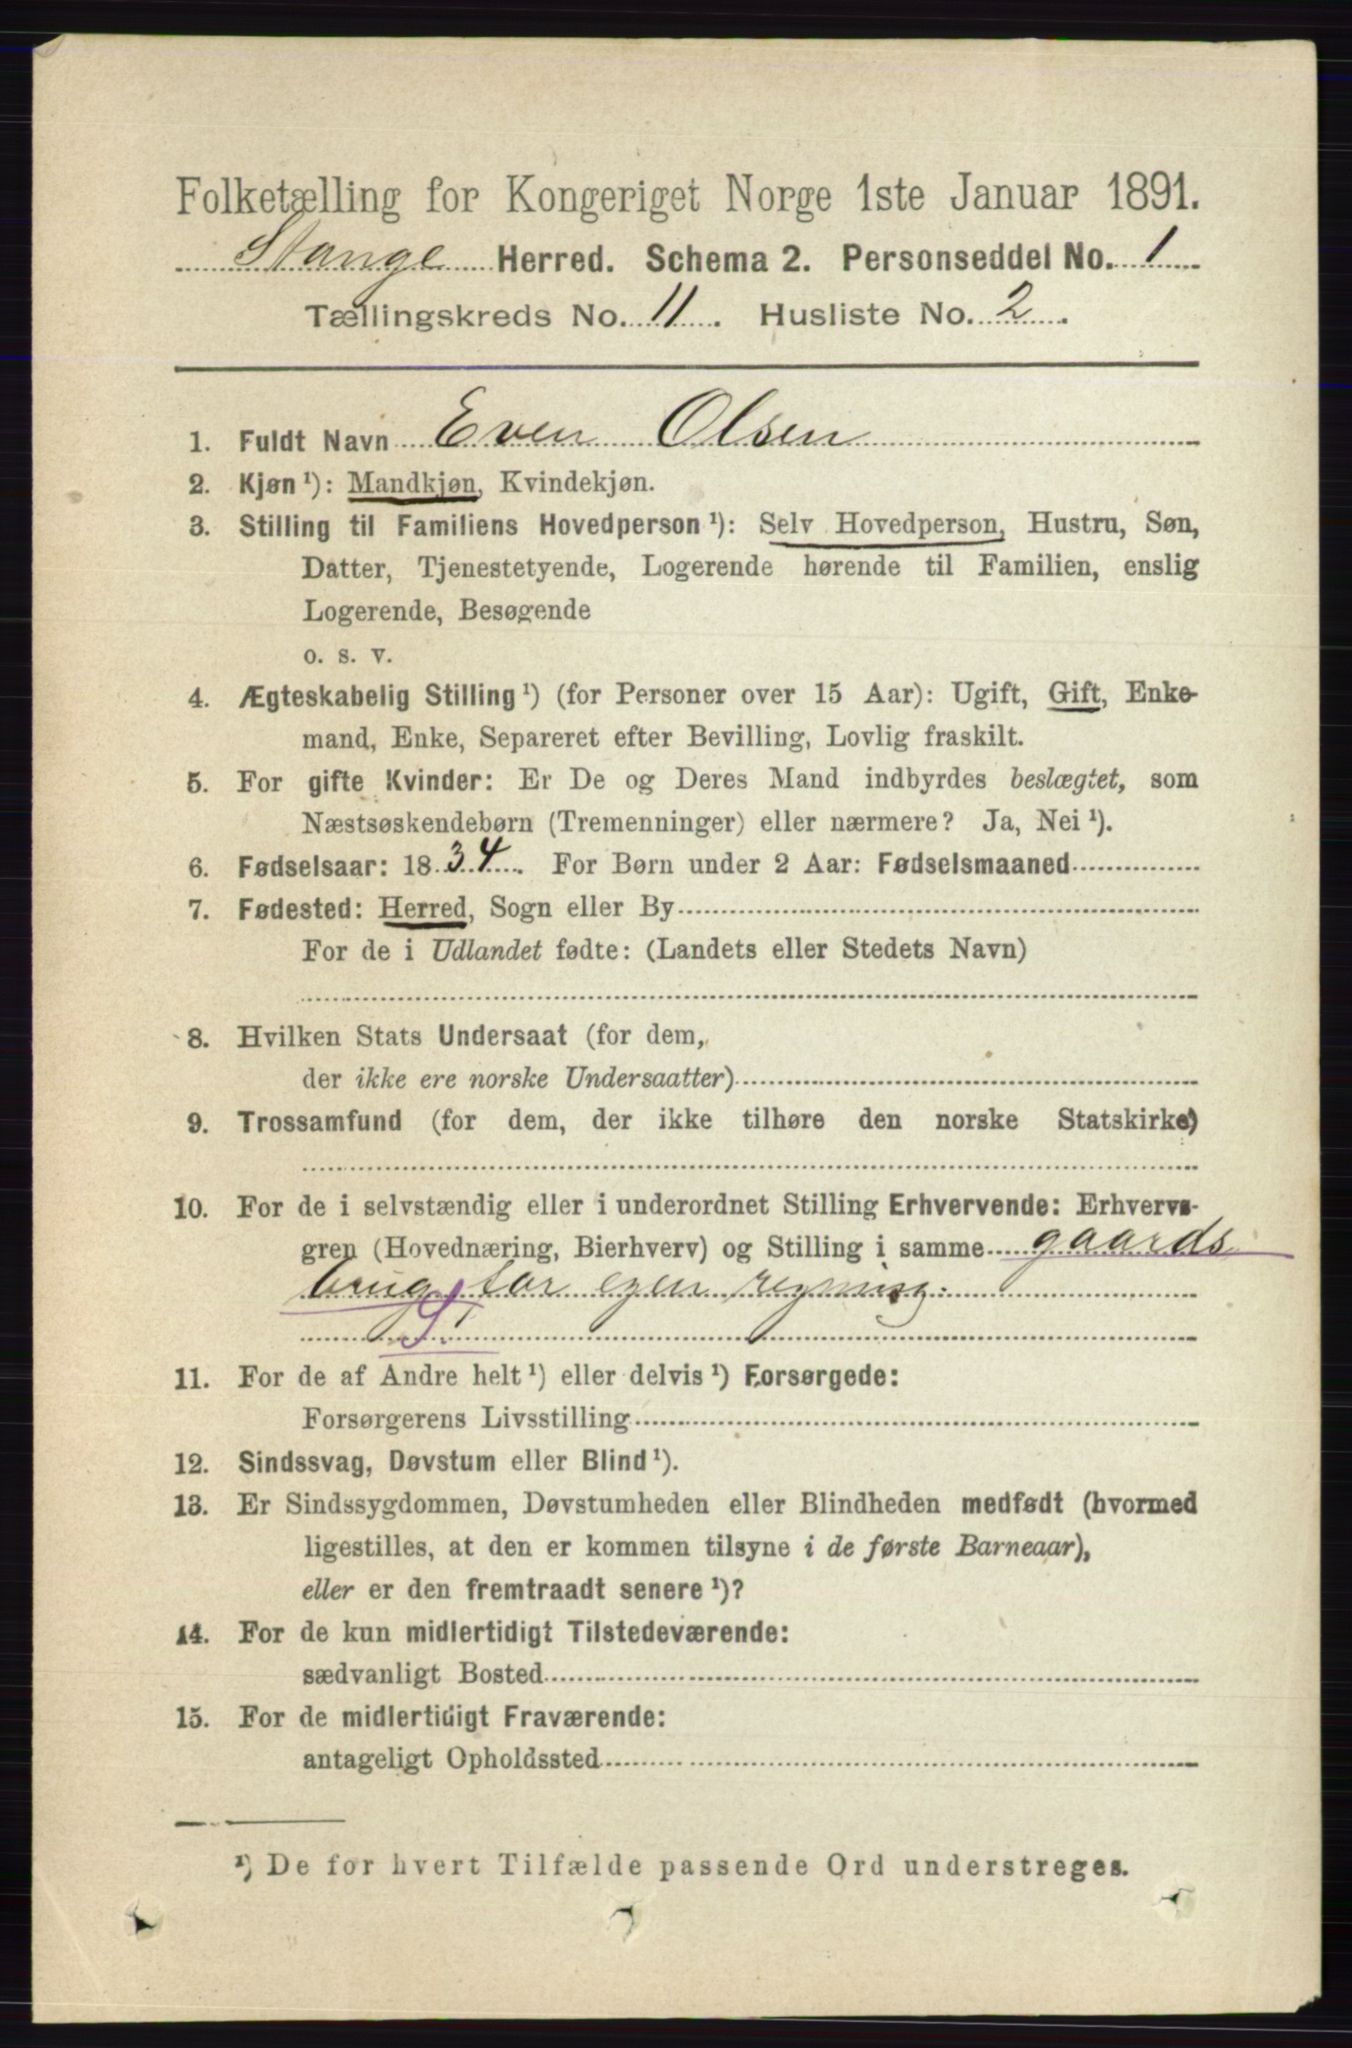 Folketælling for Kongeriget Norge 1ste Januar 1891.
Stange Herred. Schema 2. Personseddel No. 1
Tællingskreds No. 11. Husliste No. 2.
1. Fuldt Navn Even Olsen
2. Kjøn ¹): Mandkjøn, Kvindekjøn.
3. Stilling til Familiens Hovedperson ¹): Selv Hovedperson, Hustru, Søn,
Datter, Tjenestetyende, Logerende hørende til Familien, enslig
Logerende, Besøgende
o. s. v.
4. Ægteskabelig Stilling ¹) (for Personer over 15 Aar): Ugift, Gift, Enke-
mand, Enke, Separeret efter Bevilling, Lovlig fraskilt.
5. For gifte Kvinder: Er De og Deres Mand indbyrdes beslægtet, som
Næstsøskendebørn (Tremenninger) eller nærmere? Ja, Nei ¹).
6. Fødselsaar: 1834. For Børn under 2 Aar: Fødselsmaaned
7. Fødested: Herred, Sogn eller By
For de i Udlandet fødte: (Landets eller Stedets Navn)
8. Hvilken Stats Undersaat (for dem,
der ikke ere norske Undersaatter)
9. Trossamfund (for dem, der ikke tilhøre den norske Statskirke)
10. For de i selvstændig eller i underordnet Stilling Erhvervende: Erhvervs-
gren (Hovednæring, Bierhverv) og Stilling i samme gaards
brug for egen regning.
S.
11. For de af Andre helt ¹) eller delvis ¹) Forsørgede:
Forsørgerens Livsstilling
12. Sindssvag, Døvstum eller Blind ¹).
13. Er Sindssygdommen, Døvstumheden eller Blindheden medfødt (hvormed
ligestilles, at den er kommen tilsyne i de første Barneaar),
eller er den fremtraadt senere ¹)?
14. For de kun midlertidigt Tilstedeværende:
sædvanligt Bosted
15. For de midlertidigt Fraværende:
antageligt Opholdssted
¹) De for hvert Tilfælde passende Ord understreges.